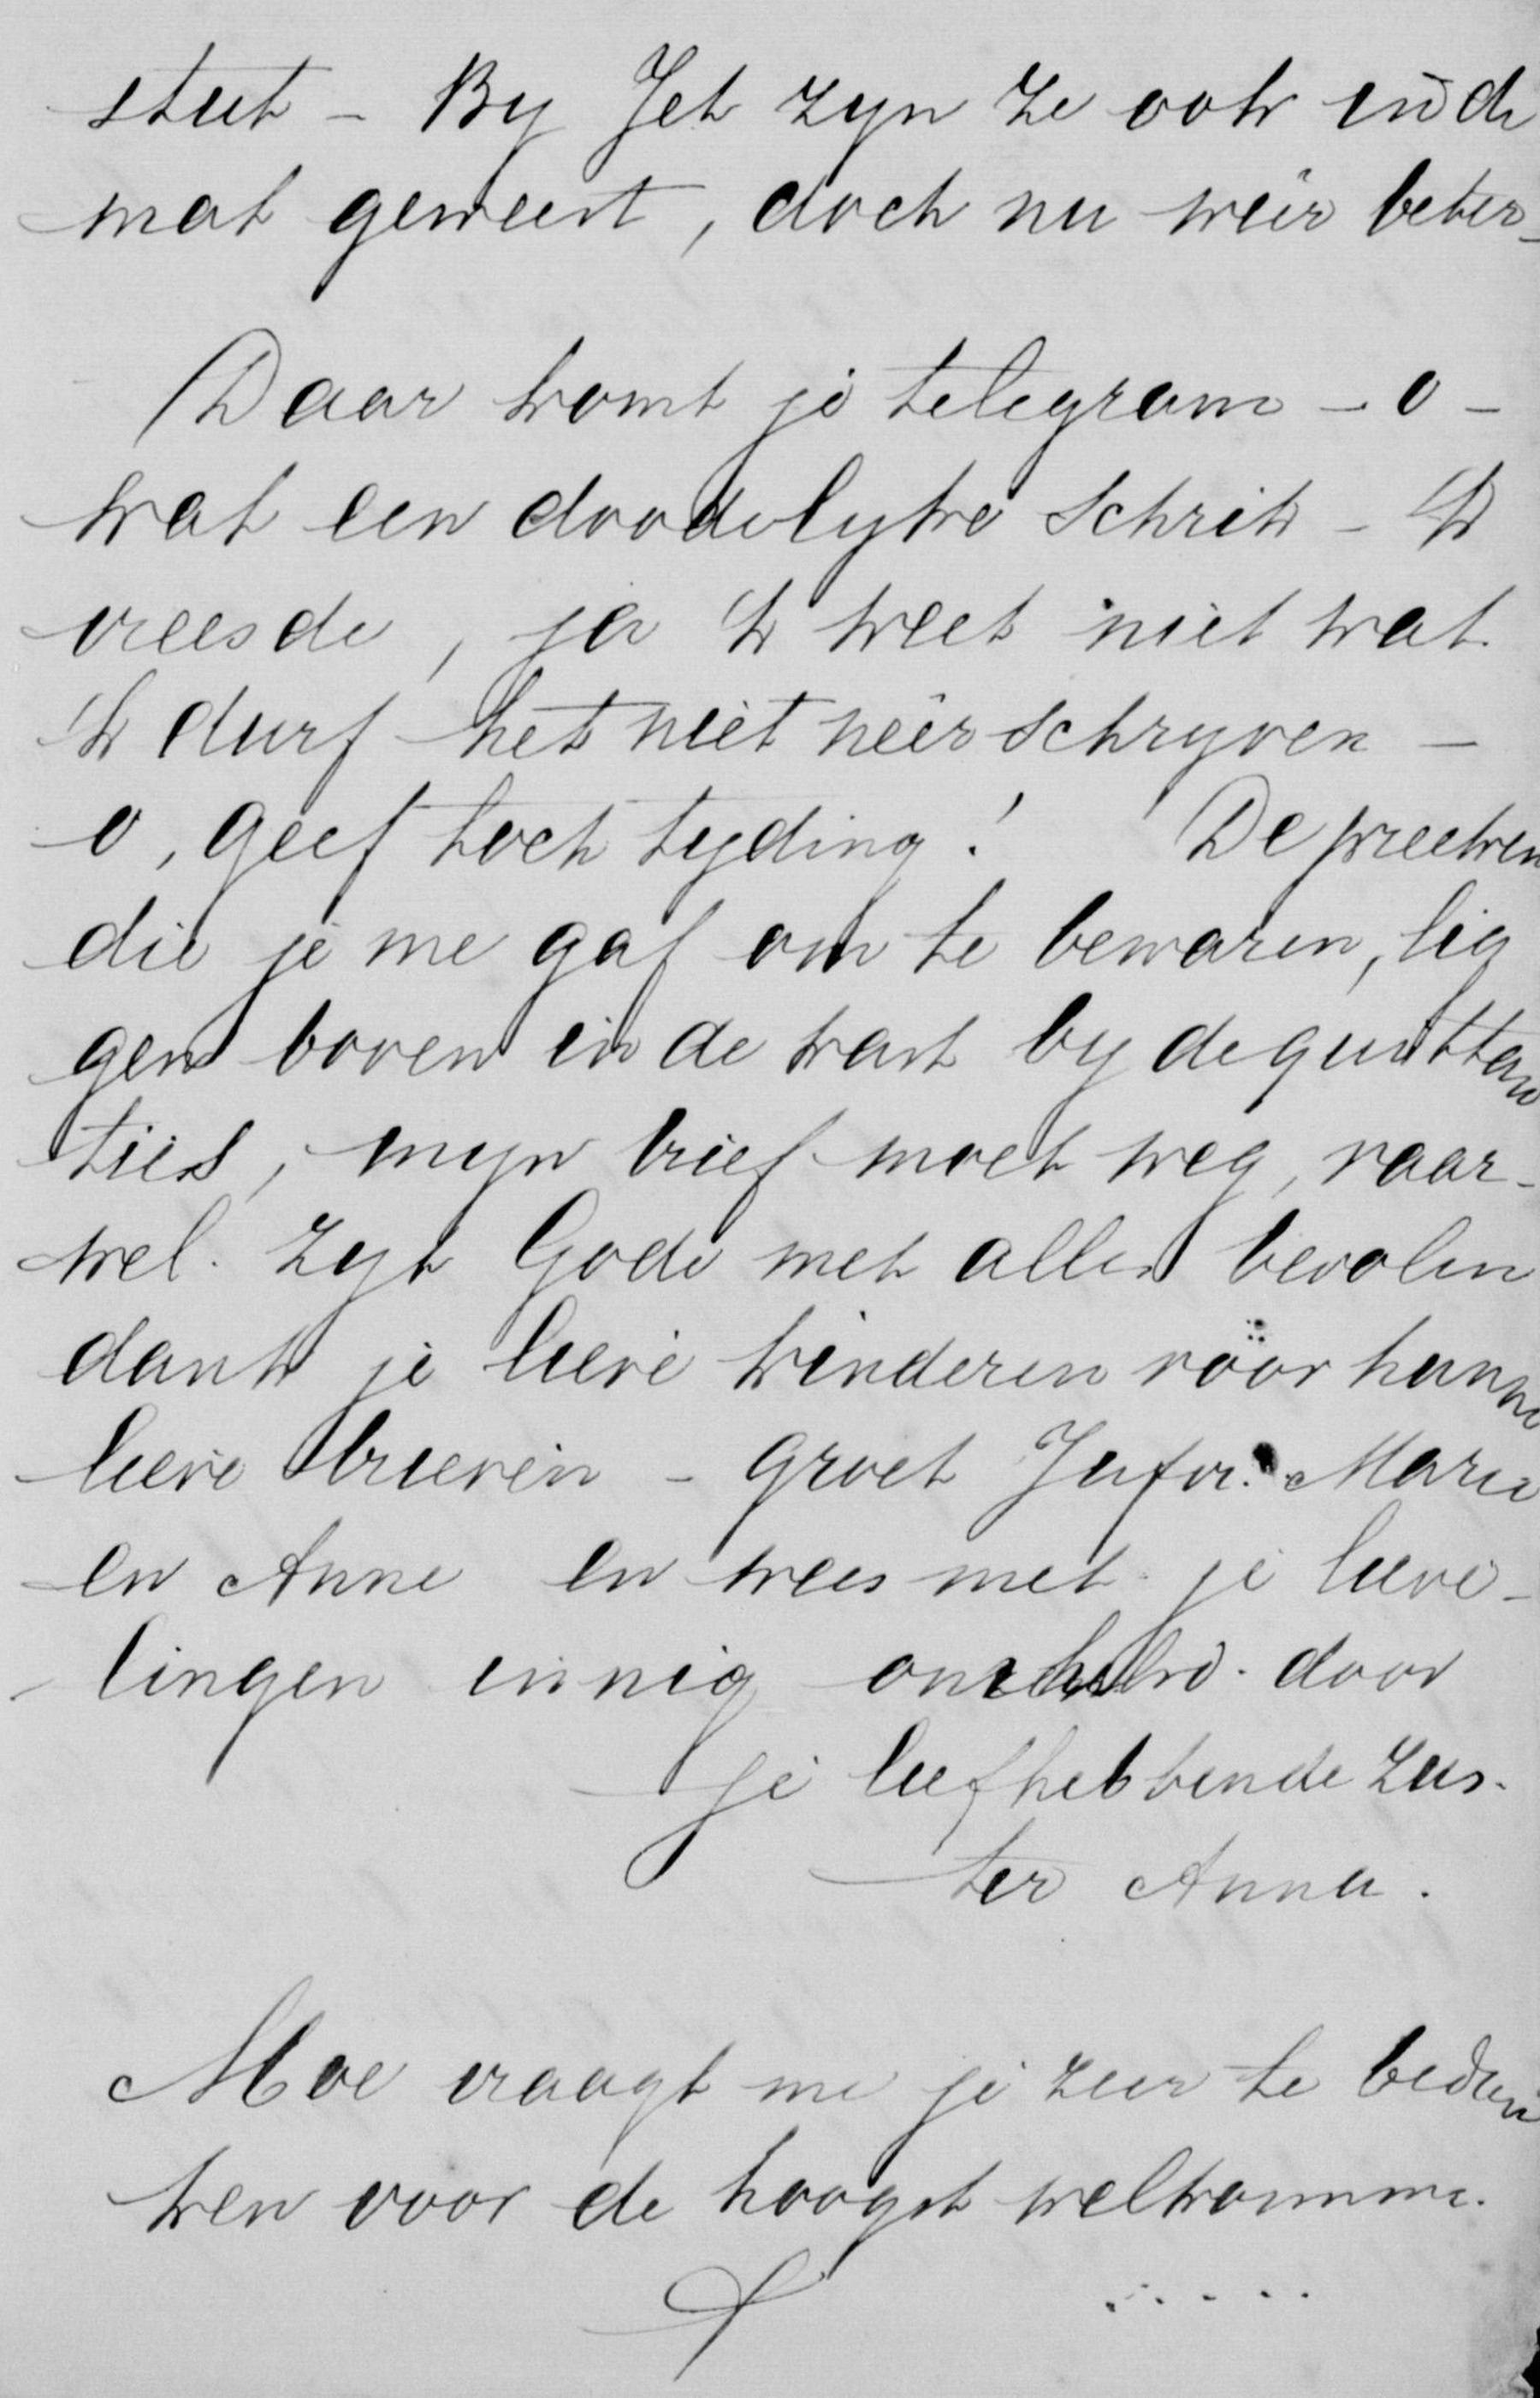 stut - By Jet zyn ze ook in de
mat geweest, doch nu weêr beter -
Daar komt je telegram - o -
wat een doodelyke schrik - Ik
vreesde, ja ik weet niet wat
ik durf het niet neêrschryven -
o, geef toch tyding! De
die je me gaf om te bewaren, lig
gen boven in de kast by de quittan
ties, myn brief moet weg, vaar-
wel. Zyt Gode met allen bevolen
dank je lieve kinderen voor hunne
lieve brieven - groet Jufvr. Marie
en Anne en wees met je lieve-
lingen innig omhelsd door
je liefhebbende zus-
ter Anna.
Moe vraagt me je zeer te bedan
ken voor de hoogst welkomme.
.....